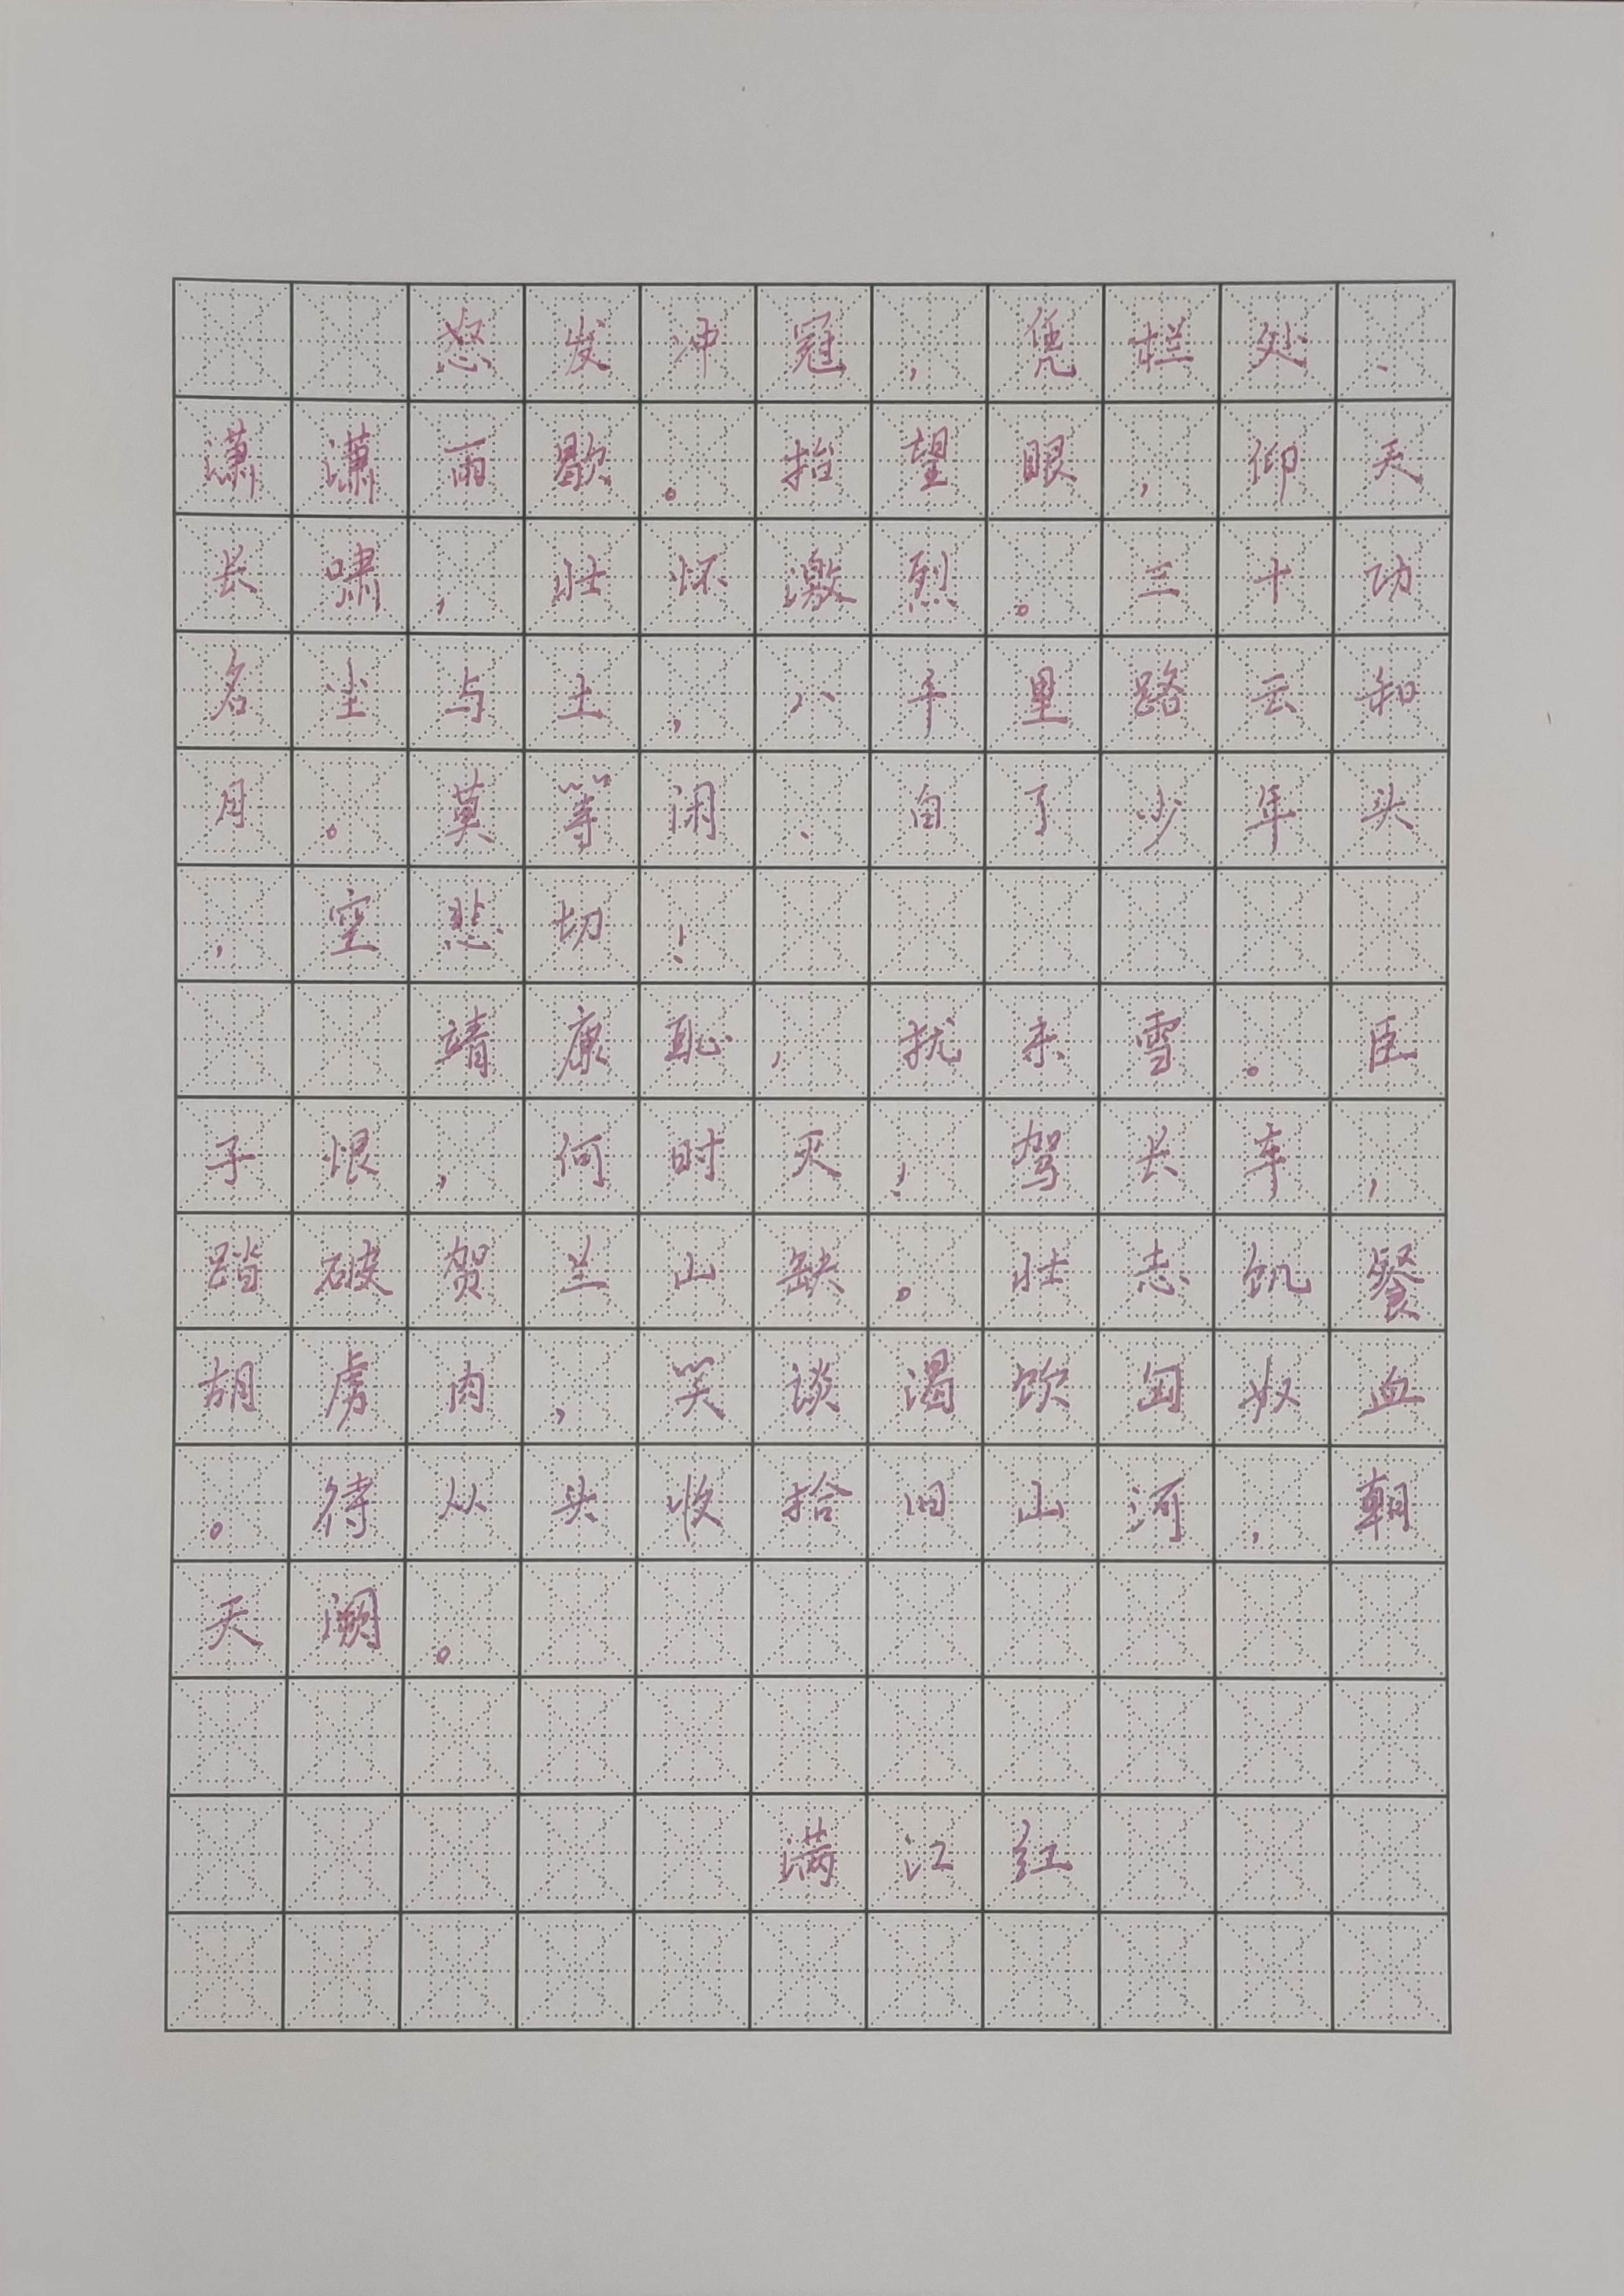 怒发冲冠，凭栏处、
潇潇雨歇。抬望眼，仰天
长啸，壮怀激烈。三十功
名尘与土，八千里路云和
月。莫等闲、白了少年头
，空悲切！
靖康耻，犹未雪。臣
子恨，何时灭！驾长车，
踏破贺兰山缺。壮志饥餐
胡虏肉，笑谈渴饮匈奴血
。待从头收拾旧山河，朝
天阙。
满江红